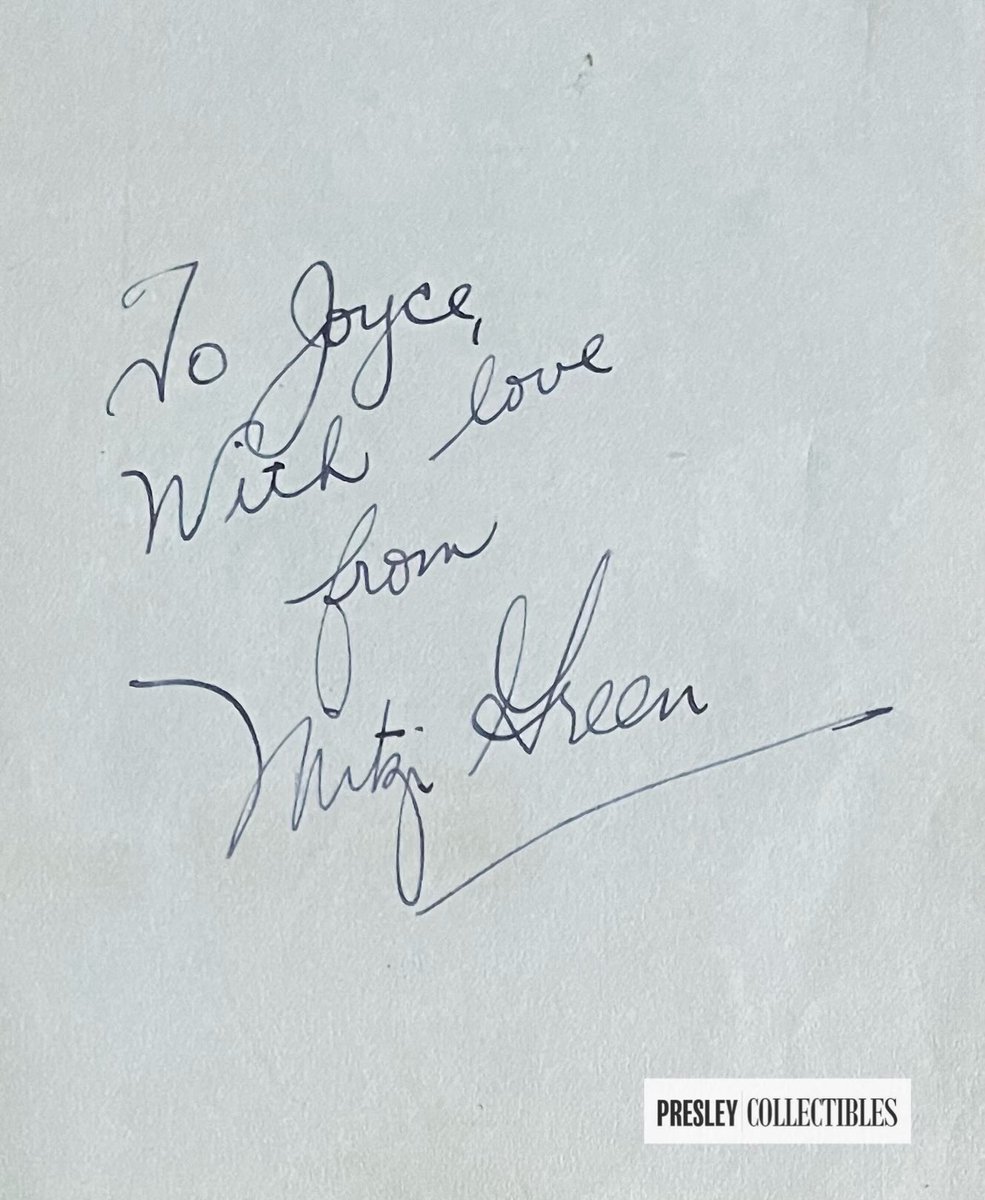 To Joyce,
With love
from
Mitzi Green
PRESLEY COLLECTIBLES